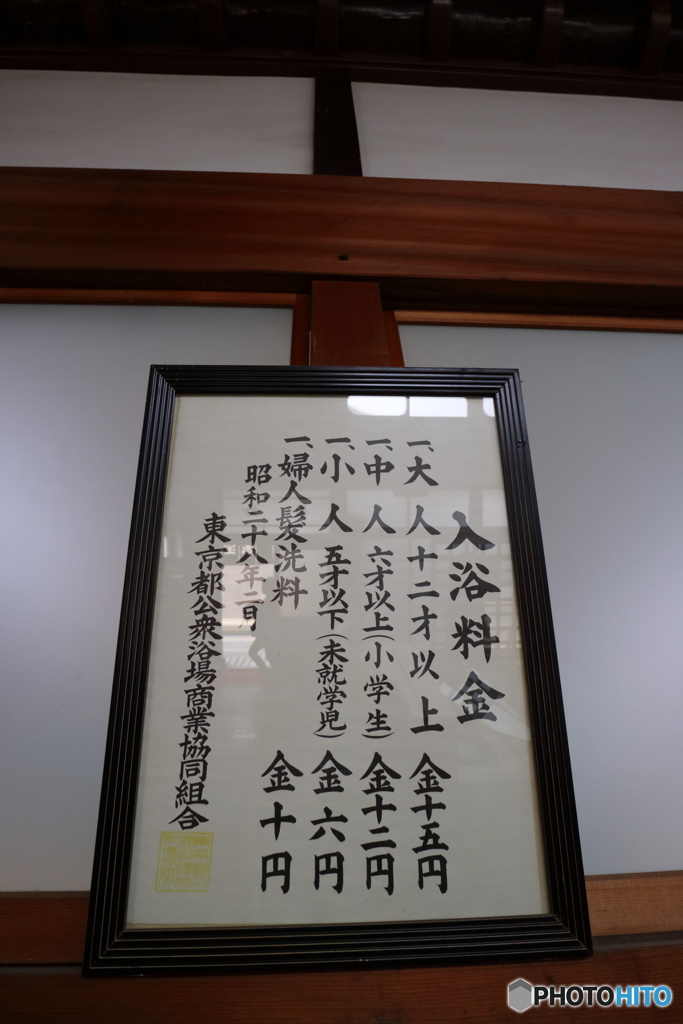 入浴料金
一、大人 十二才以上 金十五円
一、中人 六才以上(小学生) 金十二円
一、小人 五才以下(未就学児) 金六円
一、婦人髪洗料 金十円
昭和二十八年二月
東京都公衆浴場商業協同組合
PHOTOHITO